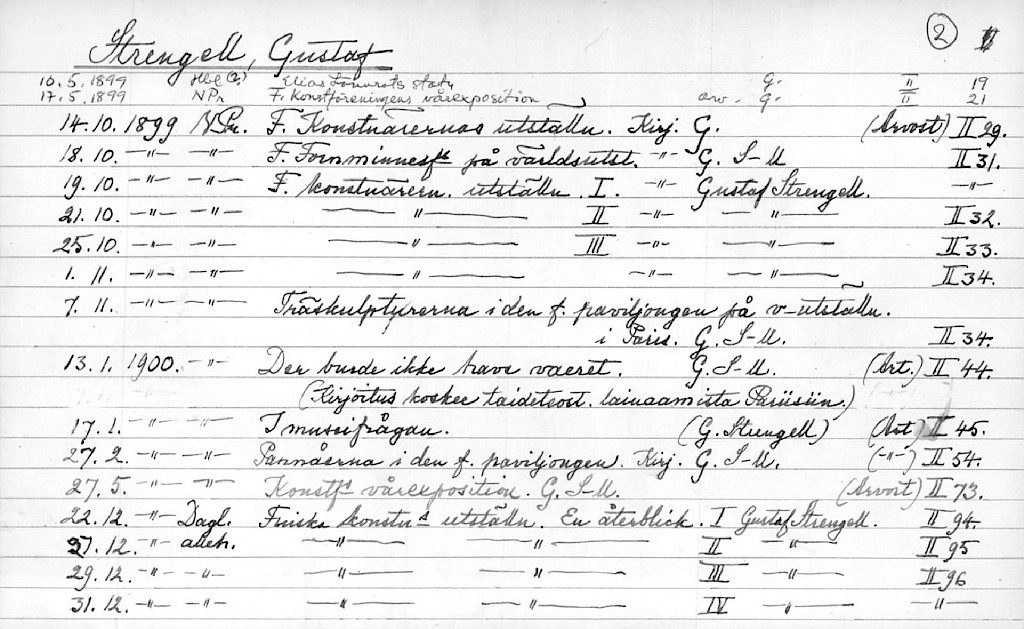 Strengell, Gustaf ②
10.5.1899 Hbl (?) Elias Lönnrots staty G. II 19
17.5.1899 NPr F. Konstföreningens vårexposition arv. G. II 21
14.10. 1899 N.Pr. F. Konstnärernas utställn. Kirj. G. (Arvost) II 29.
18.10. –"– –"– F. Fornminnesf:s på världsutst. –"– G. S-ll II 31.
19.10. –"– –"– F. konstnärern. utställn. I. –"– Gustaf Strengell. –"–
21.10. –"– –"– –"– II –"– –"– II 32.
25.10. –"– –"– –"– III –"– –"– II 33.
1.11. –"– –"– –"– –"– –"– II 34.
7.11. –"– –"– Träskulpturerna i den f. paviljongen på v-utställn.
i Paris. G. S-ll. II 34.
13.1. 1900. –"– Der burde ikke have vaeret. G. S-ll. (Art.) II 44.
(Kirjoitus koskee taideteost. lainaamista Pariisiin.)
17.1. –"– –"– I museifrågan. (G. Strengell) (Art) II 45.
27.2. –"– –"– Pannåerna i den f. paviljongen. Kirj. G. S-ll. (–"–) II 54.
27.5. –"– –"– Konstf:s vårexposition. G. S-ll. (Arvost) II 73.
22.12. –"– Dagl. Finska konstn:s utställn. En återblick. I Gustaf Strengell. II 94.
27.12. –"– alleh. –"– –"– II –"– II 95
29.12. –"– –"– –"– –"– III –"– II 96
31.12. –"– –"– –"– –"– IV –"– –"–